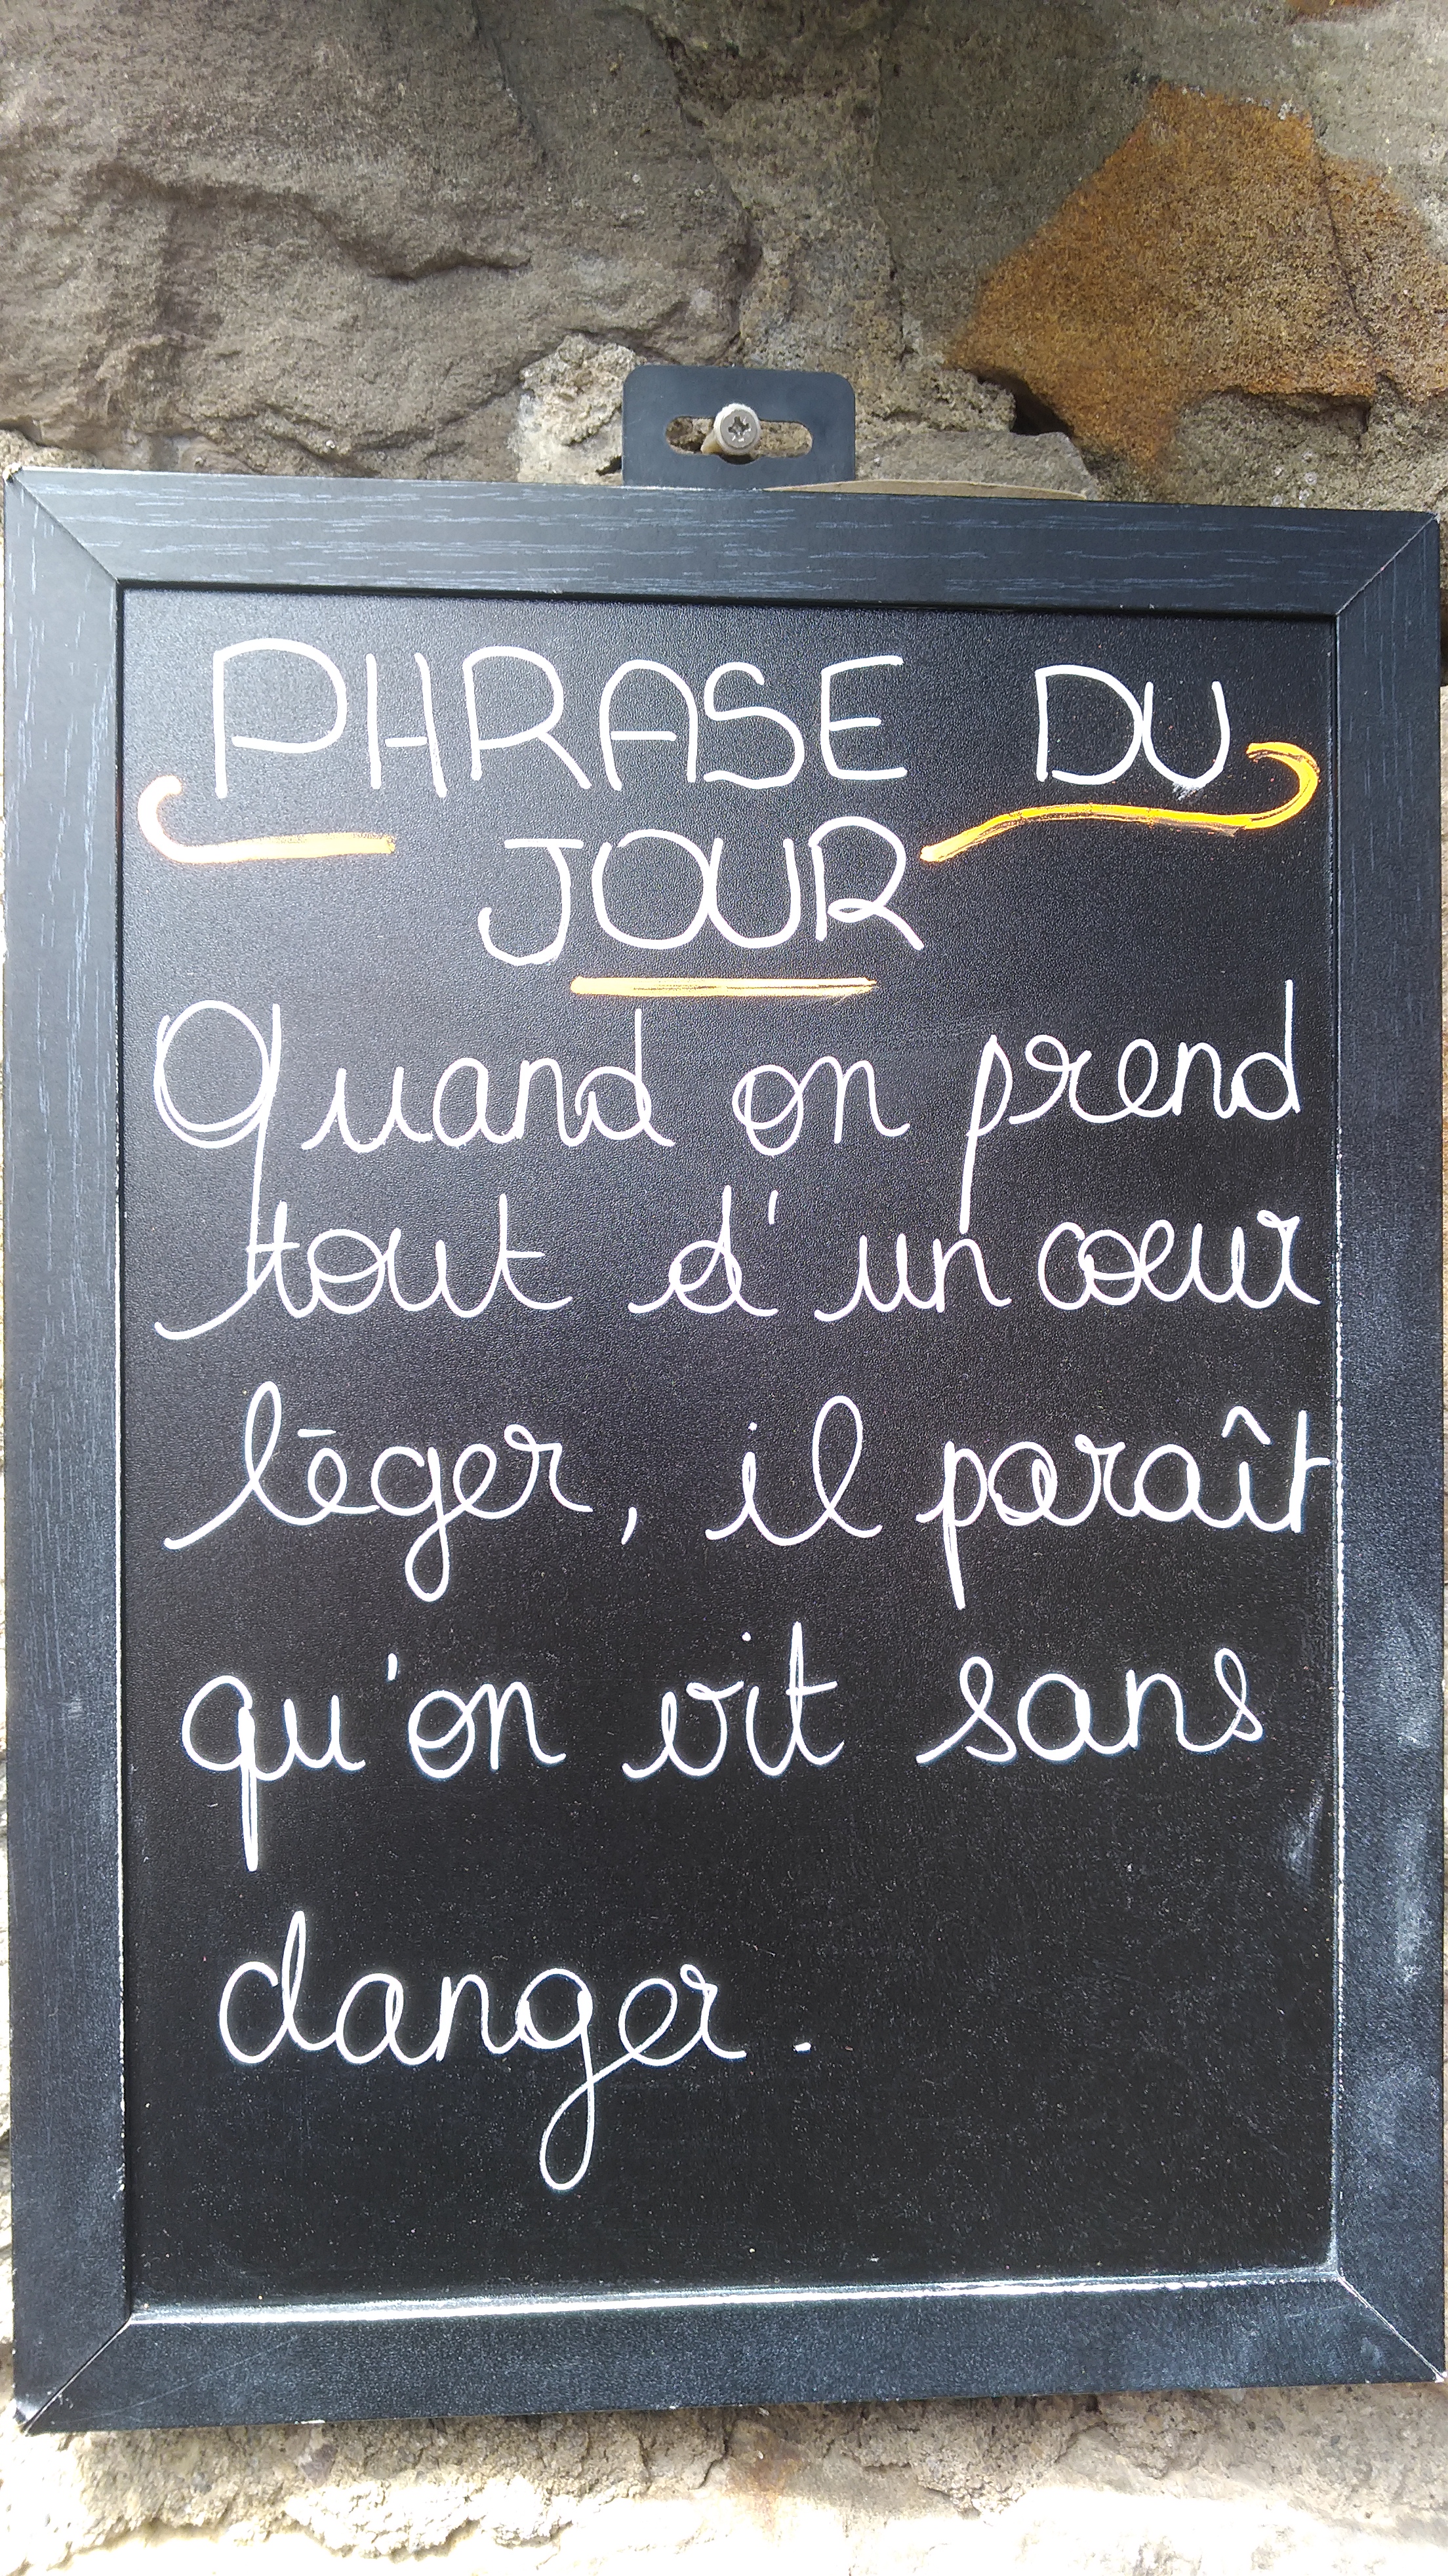 PHRASE DU
JOUR
Quand on prend
tout d'un cœur
léger, il paraît
qu'on vit sans
danger.